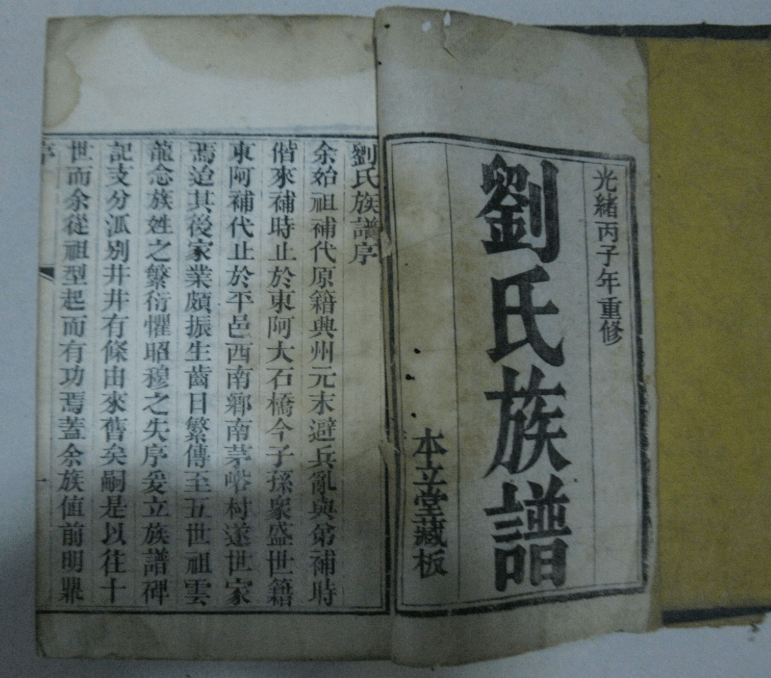 光緒丙子年重修
劉氏族譜
本立堂藏板
劉氏族譜序
余始祖補代原籍興州元末避兵亂與第補時
偕來補時止於東阿大石橋今子孫衆盛世籍
東阿補代止於平邑西南鄉南茅峪村遂世家
焉迨其後家業頗振生齒日繁傳至五世祖雲
龍念族姓之繁衍懼昭穆之失序爰立族譜碑
記支分泒別井井有條由來舊矣嗣是以往十
世而余從祖型起而有功焉蓋余族値前明鼎
序